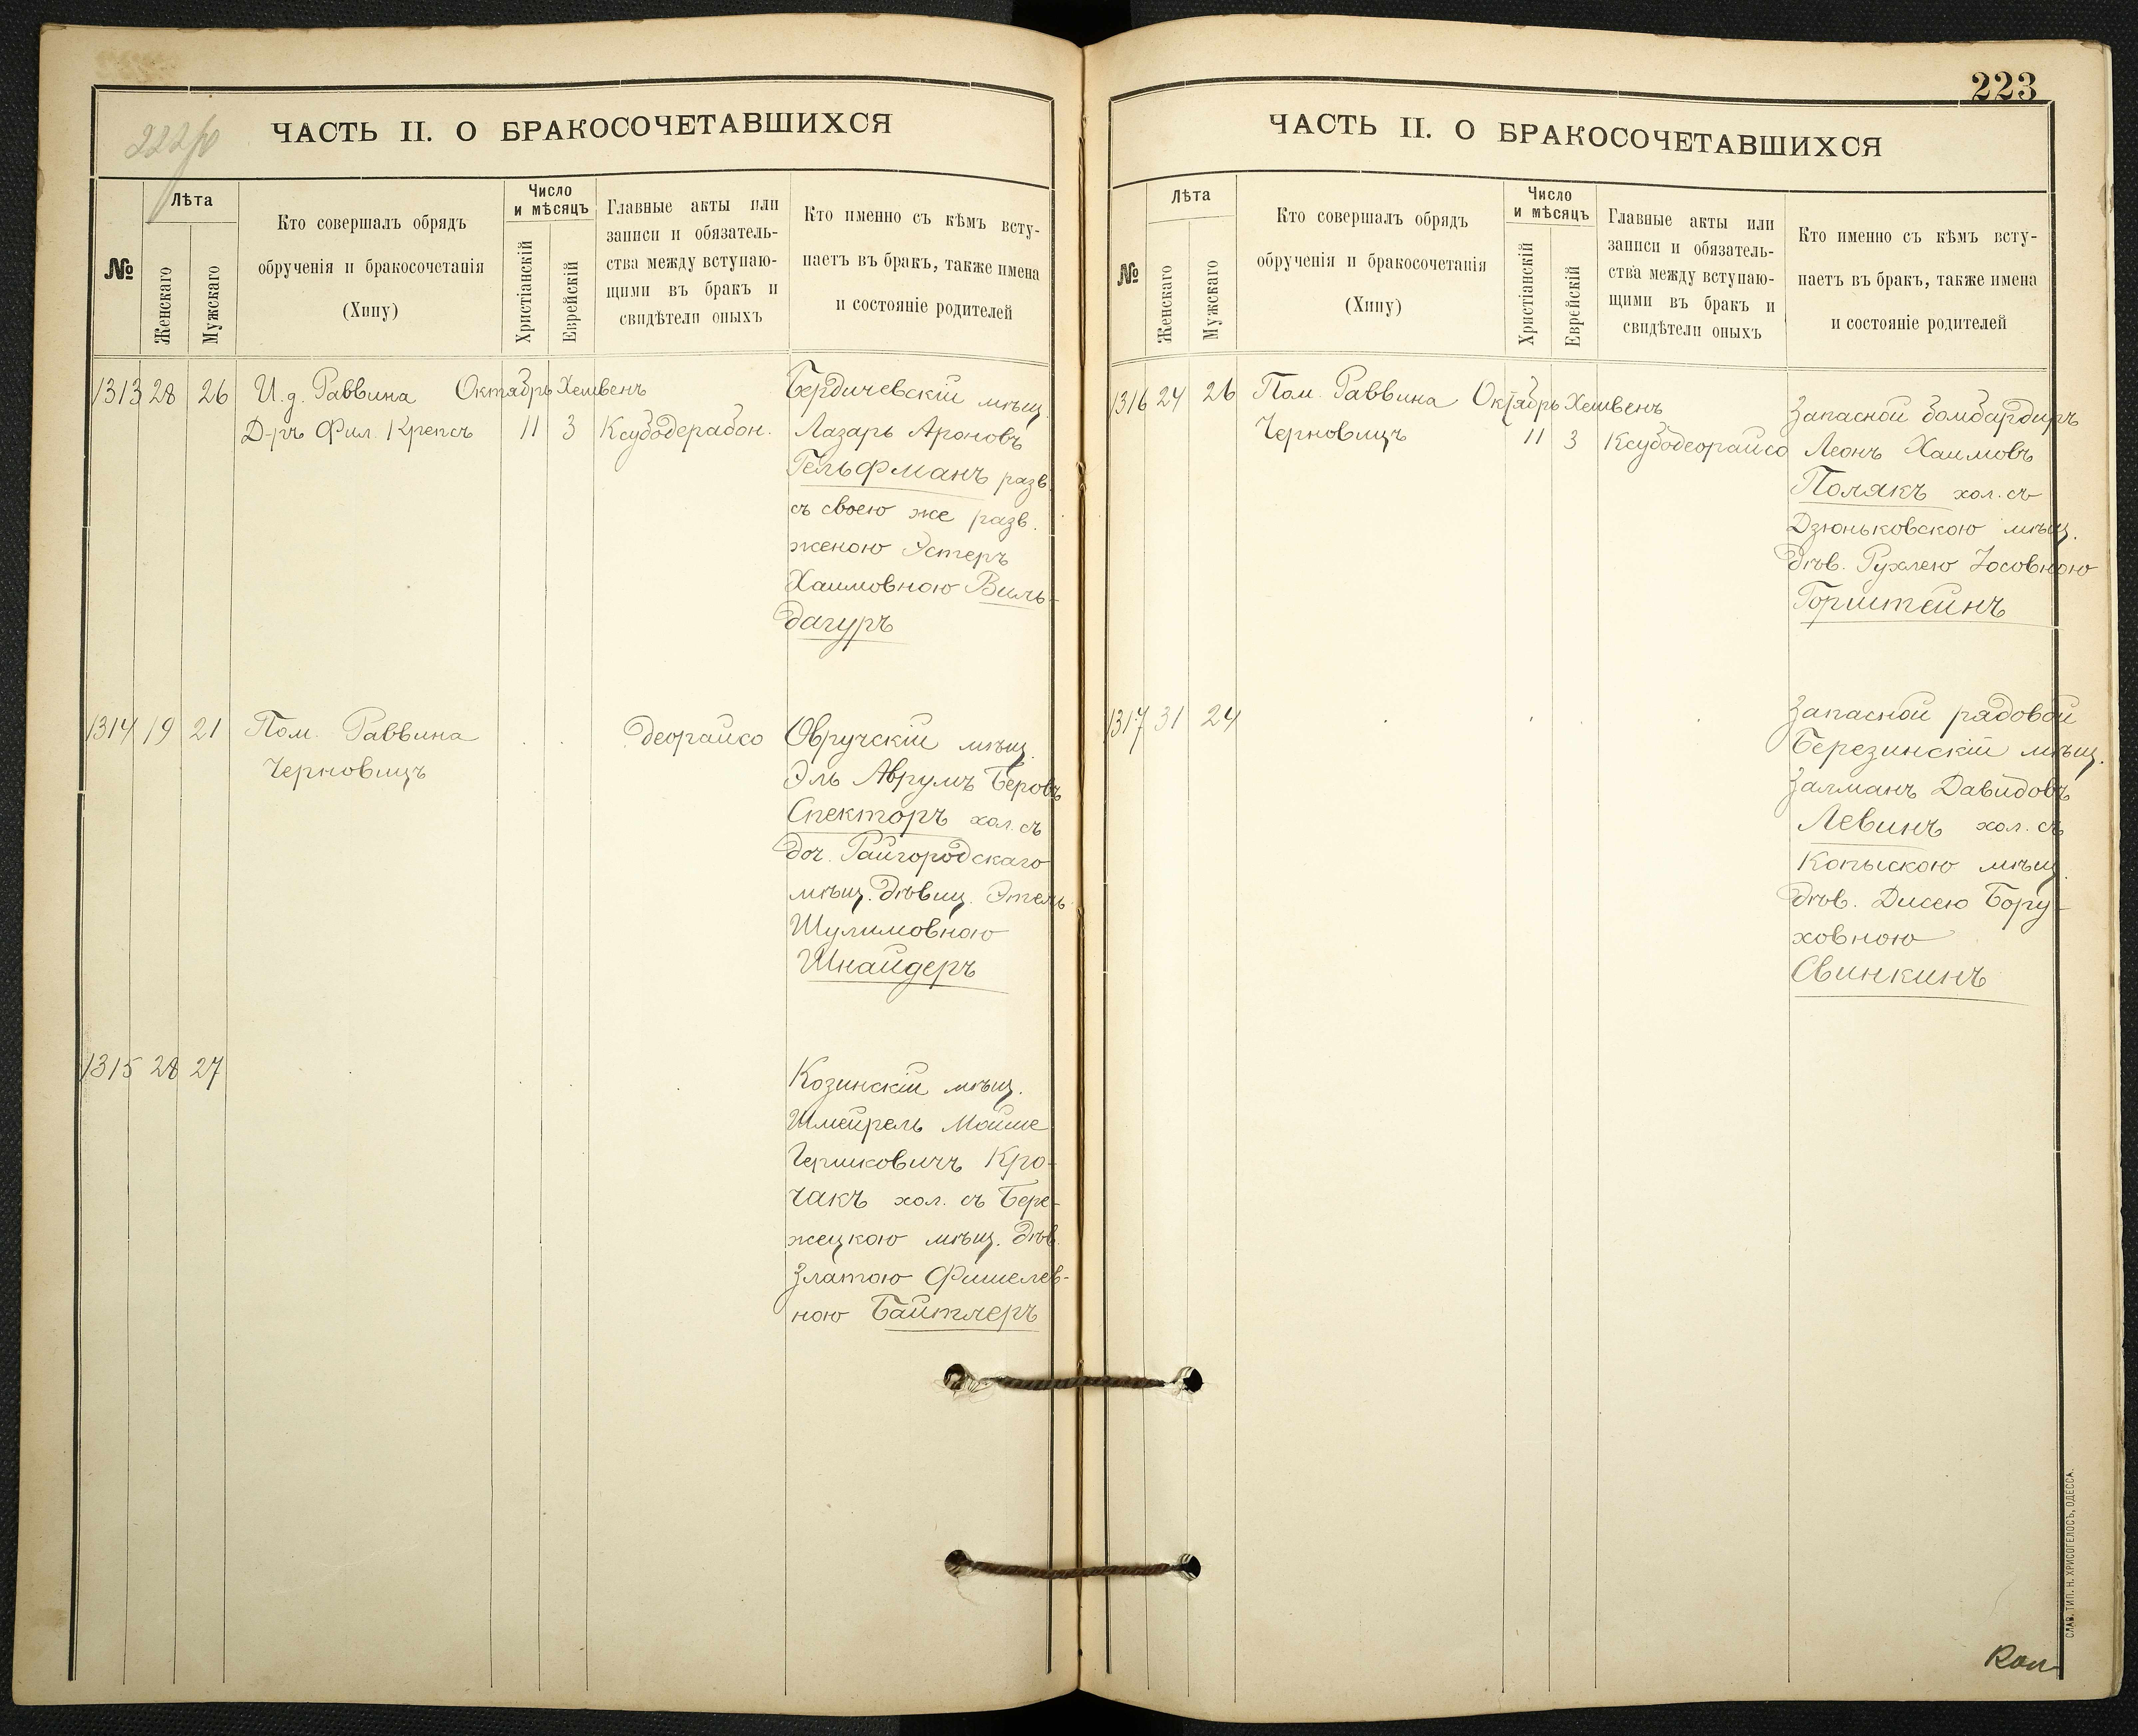 222об
ЧАСТЬ II. О БРАКОСОЧЕТАВШИХСЯ
№
Лѣта
Женскаго
Мужскаго
Кто совершалъ обрядъ
обрученія и бракосочетанія
(Хипу)
Число
и мѣсяцъ
Христіанскій
Еврейскій
Главные акты или
записи и обязатель-
ства между вступаю-
щими въ бракъ и
свидѣтели оныхъ
Кто именно съ кѣмъ всту-
паетъ въ бракъ, также имена
и состояніе родителей
1313 28 26 И.д. Раввина Октябрь Хешвенъ
Д-ръ Фил. Крепсъ 11 3 Ксубодерабон.
Бердичевскій мѣщ.
Лазарь Ароновъ
Гельфманъ разв.
съ своею же разв.
женою Эстеръ
Хаимовною Виль-
дагуръ
1314 19 21 Пом. Раввина
Черновицъ
деорайсо
Овручскій мѣщ.
Эль Аврумъ Беровъ
Спекторъ хол. съ
доч. Райгородскаго
мѣщ. дѣвиц. Этель
Шулимовною
Шнайдеръ
1315 28 27
Козинскій мѣщ.
Шмейрель Мойше
Гершковичъ Кро-
чакъ хол. съ Бере-
жецкою мѣщ. дѣв.
Златою Фишелев-
ною Байтлеръ
223
ЧАСТЬ II. О БРАКОСОЧЕТАВШИХСЯ
№
Лѣта
Женскаго
Мужскаго
Кто совершалъ обрядъ
обрученія и бракосочетанія
(Хипу)
Число
и мѣсяцъ
Христіанскій
Еврейскій
Главные акты или
записи и обязатель-
ства между вступаю-
щими въ бракъ и
свидѣтели оныхъ
Кто именно съ кѣмъ всту-
паетъ въ бракъ, также имена
и состояніе родителей
1316 24 26 Пом. Раввина Октябрь Хешвенъ
Черновицъ 11 3 Ксубодеорайсо
Запасной бомбардиръ
Леонъ Хаимовъ
Полякъ хол. съ
Дзюньковскою мѣщ.
дѣв. Рухлею Іосовною
Горштейнъ
1317 31 24
Запасной рядовой
Березинскій мѣщ.
Залманъ Давидовъ
Левинъ хол. съ
Копыскою мѣщ.
дѣв. Дисею Бору-
ховною
Свинкинъ
СЛАВ. ТИП. Н. ХРИСОГЕЛОСЪ, ОДЕССА.